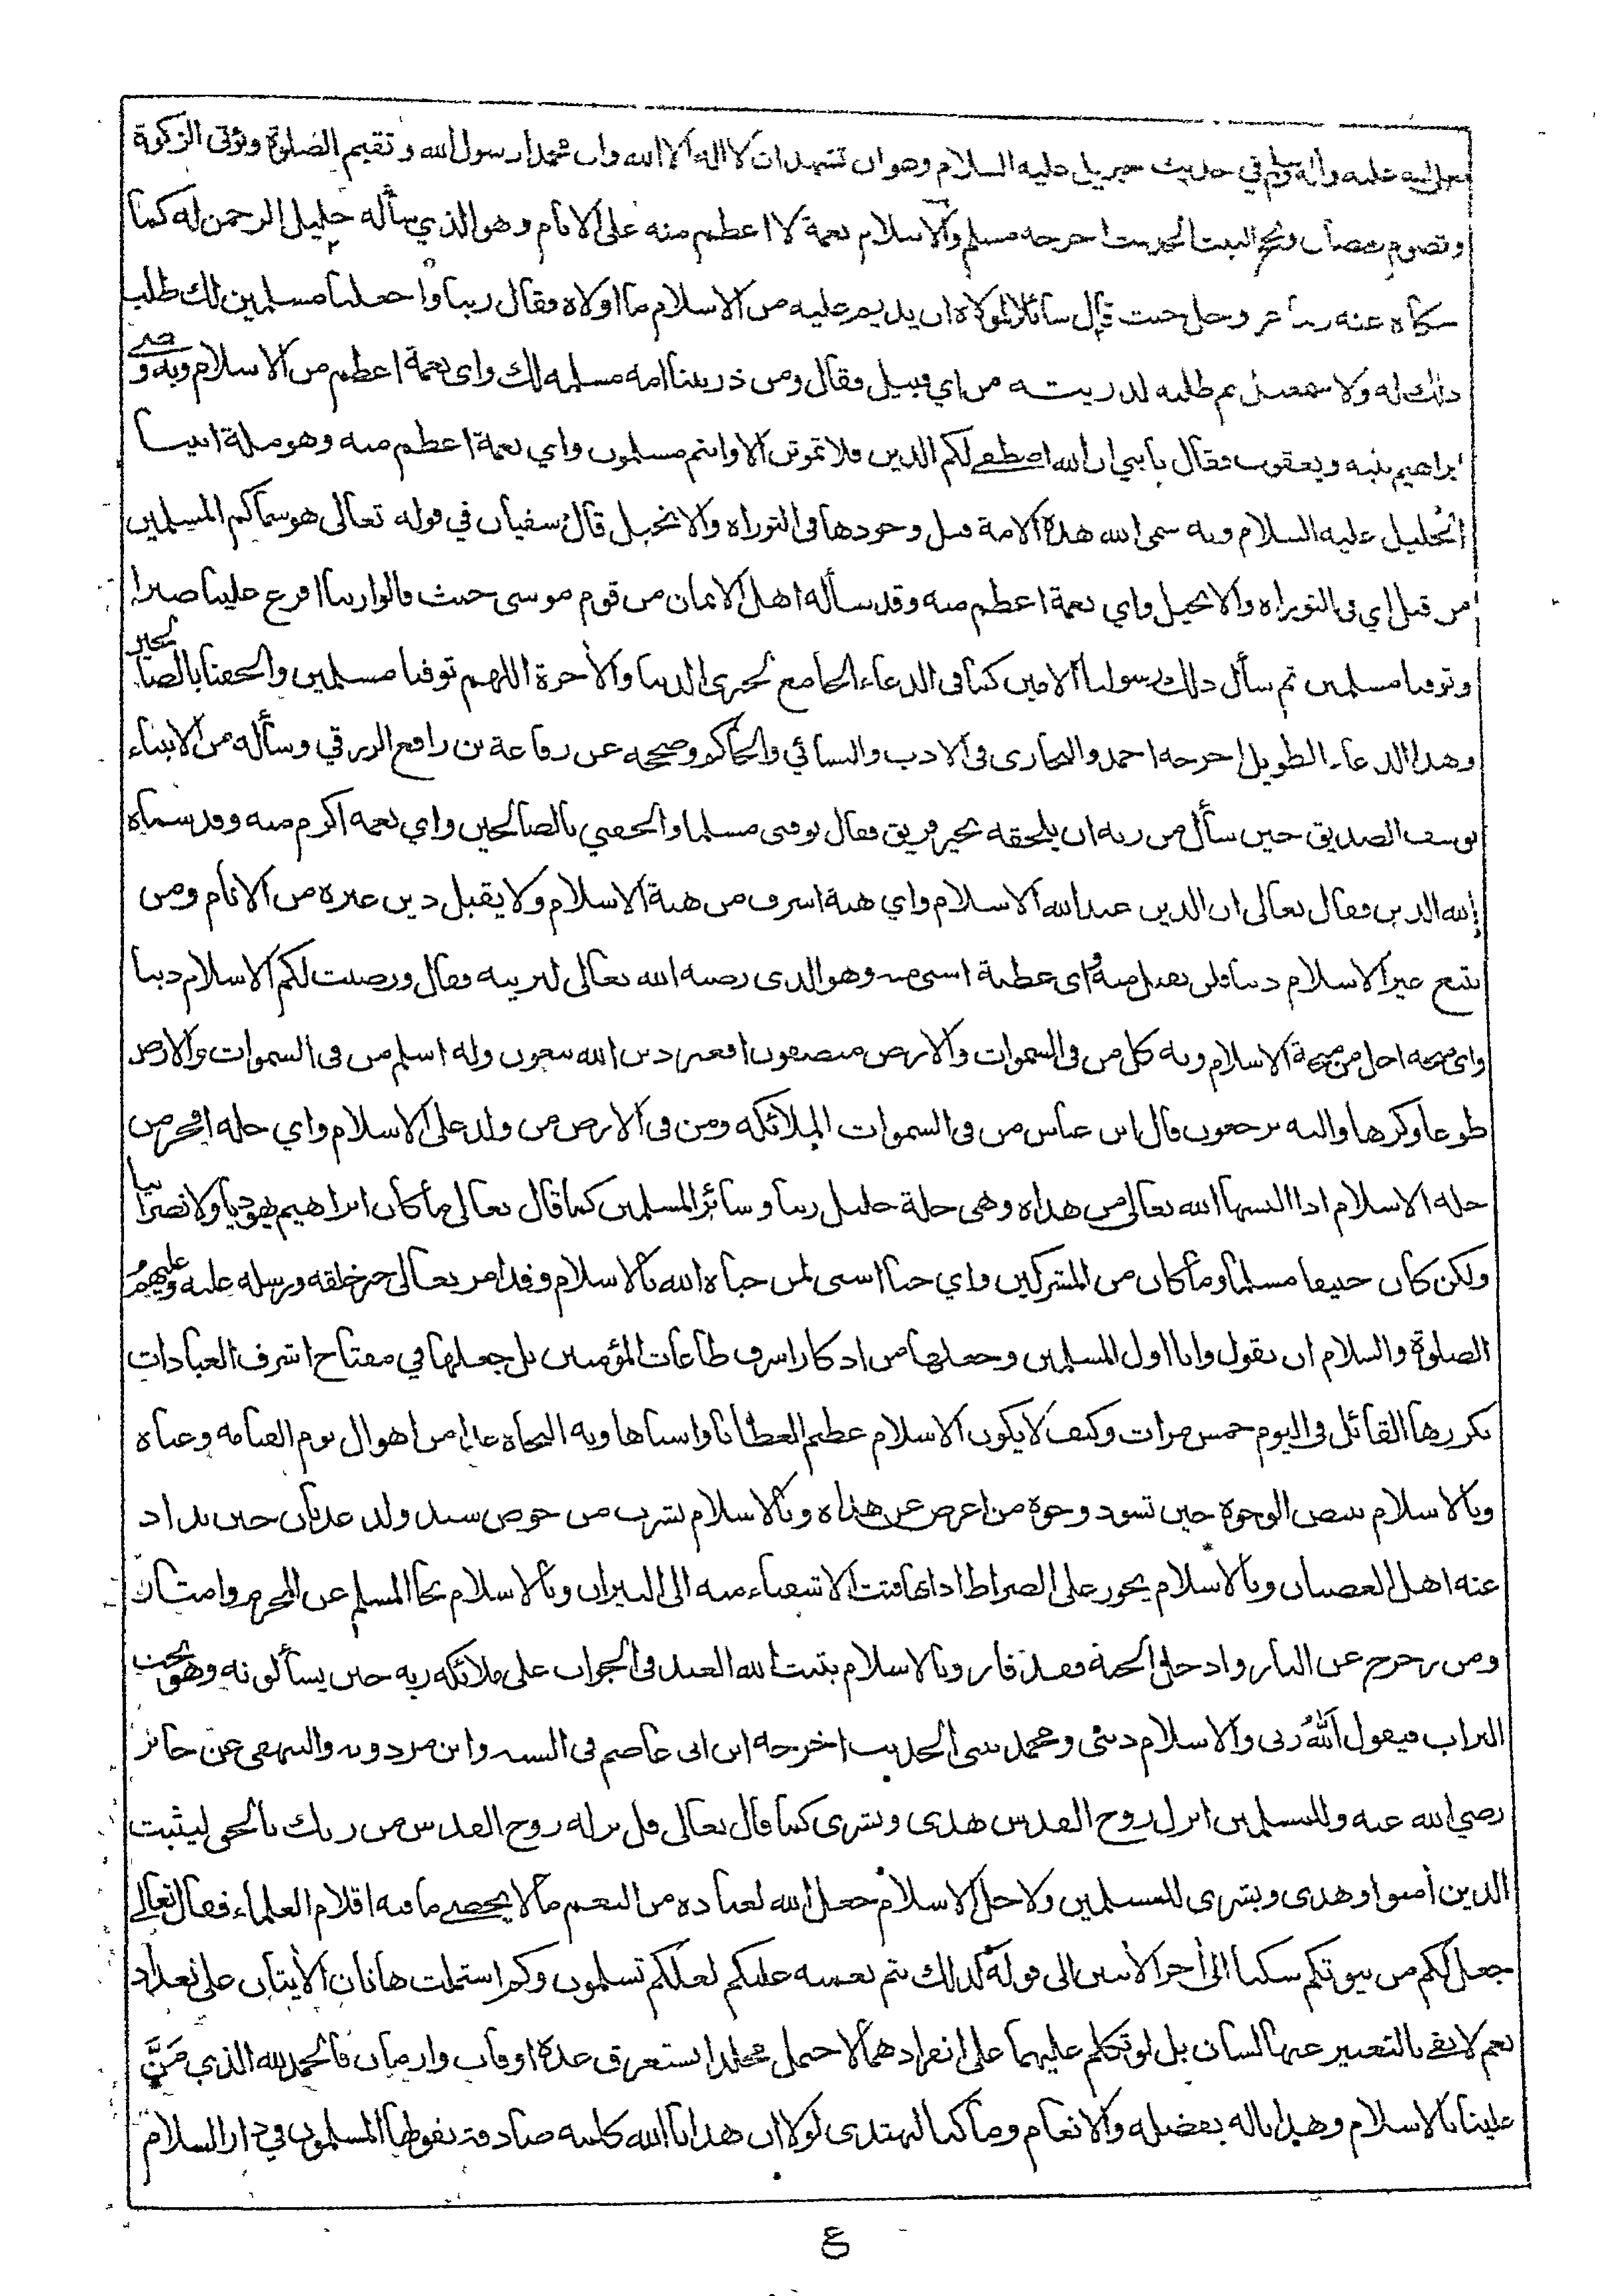 صلى الله عليه وآله وسلم في حديث جبريل عليه السلام وهو ان تشهد ان لا اله الا الله وان محمدا رسول الله وتقيم الصلوة وتؤتى الزكوة
وتصوم رمضان وتحج البيت الحديث اخرجه مسلم والاسلام نعمة لا اعظم منه على الانام وهو الذي سأله خليل الرحمن له كما
حكاه عنه ربنا عز وجل حيث قال سائلا لمولاه ان يديم عليه من الاسلام ما اولاه وقال ربنا واجعلنا مسلمين لك طلب
ذلك له ولاسمعيل ثم طلبه لذريته من اي قبيل فقال ومن ذريتنا امه مسلمه لك واي نعمة اعظم من الاسلام وبه وصى
ابراهيم بنيه ويعقوب فقال يا بني ان الله اصطفى لكم الدين فلا تموتن الا وانتم مسلمون واي نعمة اعظم منه وهو ملة ابينا
الخليل عليه السلام وبه سمى الله هذه الامة قبل وجودها فى التوراه والانجيل قال سفيان في قوله تعالى هو سماكم المسلمين
من قبل اي فى التوراه والانجيل واي نعمة اعظم منه وقد سأله اهل الايمان من قوم موسى حيث قالوا ربنا افرغ علينا صبرا
وتوفنا مسلمين ثم سأل ذلك رسولنا الامين كما فى الدعاء الجامع لخيرى الدنيا والآخرة اللهم توفنا مسلمين والحقنا بالصالحين
وهذا الدعاء الطويل اخرجه احمد والبخارى فى الادب والنسائي والحاكم وصححه عن رفاعة بن رافع الزرقي وسأله من الانبياء
يوسف الصديق حين سأل من ربه ان يلحقه بخير فريق فقال توفنى مسلما والحقني بالصالحين واي نعمه اكرم منه وقد سماه
الله الدين فقال تعالى ان الدين عند الله الاسلام واي هبة اشرف من هبة الاسلام ولا يقبل دين غيره من الانام ومن
يتبع غير الاسلام دينا فلن يقبل منه واى عطية اسنى منه وهو الذى رضيه الله تعالى لبريته فقال ورضيت لكم الاسلام دينا
واى منحه اجل من منحة الاسلام وبه كل من فى السموات والارض متصفون افغير دين الله يبغون وله اسلم من فى السموات والارض
طوعا وكرها واليه يرجعون قال ابن عباس من فى السموات الملائكه ومن فى الارض من ولد على الاسلام واي حله افخر من
حله الاسلام اذا البسها الله تعالى من هداه وهى حلة خليل ربنا وسائر المسلمين كما قال تعالى ما كان ابراهيم يهوديا ولا نصرانيا
ولكن كان حنيفا مسلما وما كان من المشركين واي حبا اسنى لمن حباه الله بالاسلام وقد امر تعالى خير خلقه ورسله عليه وعليهم
الصلوة والسلام ان يقول وانا اول المسلمين وجعلها من اذكار اشرف طاعات المؤمنين بل جعلها في مفتاح اشرف العبادات
يكررها القائل فى اليوم خمس مرات وكيف لا يكون الاسلام عظيم العطايا واسناها وبه النجاة غدا من اهوال يوم القيامه وعناه
وبالاسلام تبيض الوجوة حين تسود وجوة من اعرض عن هداه وبالاسلام يشرب من حوض سيد ولد عدنان حين يذاد
عنه اهل العصيان وبالاسلام يجوز على الصراط اذا تهافتت الاشقياء منه الى النيران وبالاسلام نجا المسلم عن المجرم وامتاز
ومن زحزح عن النار وادخل الجنة فقد فاز وبالاسلام يثبت الله العبد فى الجواب على ملائكه ربه حين يسألونه وهو تحت
التراب فيقول اللهُ ربى والاسلام دينى ومحمد نبيى الحديث اخرجه ابن ابى عاصم فى السنه وابن مردويه والبيهقى عن جابر
رضي الله عنه وللمسلمين انزل روح القدس هدى وبشرى كما قال تعالى قل نزله روح القدس من ربك بالحق ليثبت
الذين آمنوا وهدى وبشرى للمسلمين ولاجل الاسلام جعل الله لعباده من النعم ما لا يحصى ما فيه اقلام العلماء فقال تعالى
جعل لكم من بيوتكم سكنا الى آخر الآيتين الى قوله كذلك يتم نعمته عليكم لعلكم تسلمون وكم اشتملت هاتان الآيتان على تعداد
نعم لا يفى بالتعبير عنها لسان بل لو تكلم عليهما على انفرادهما لاحتمل مجلدا يستغرق عدة اوقات وازمان فالحمد لله الذي مَنَّ
علينا بالاسلام وهدانا له بفضله والانعام وما كنا لنهتدى لولا ان هدانا الله كلمه صادقة يقولها المسلمون في دار السلام
٤